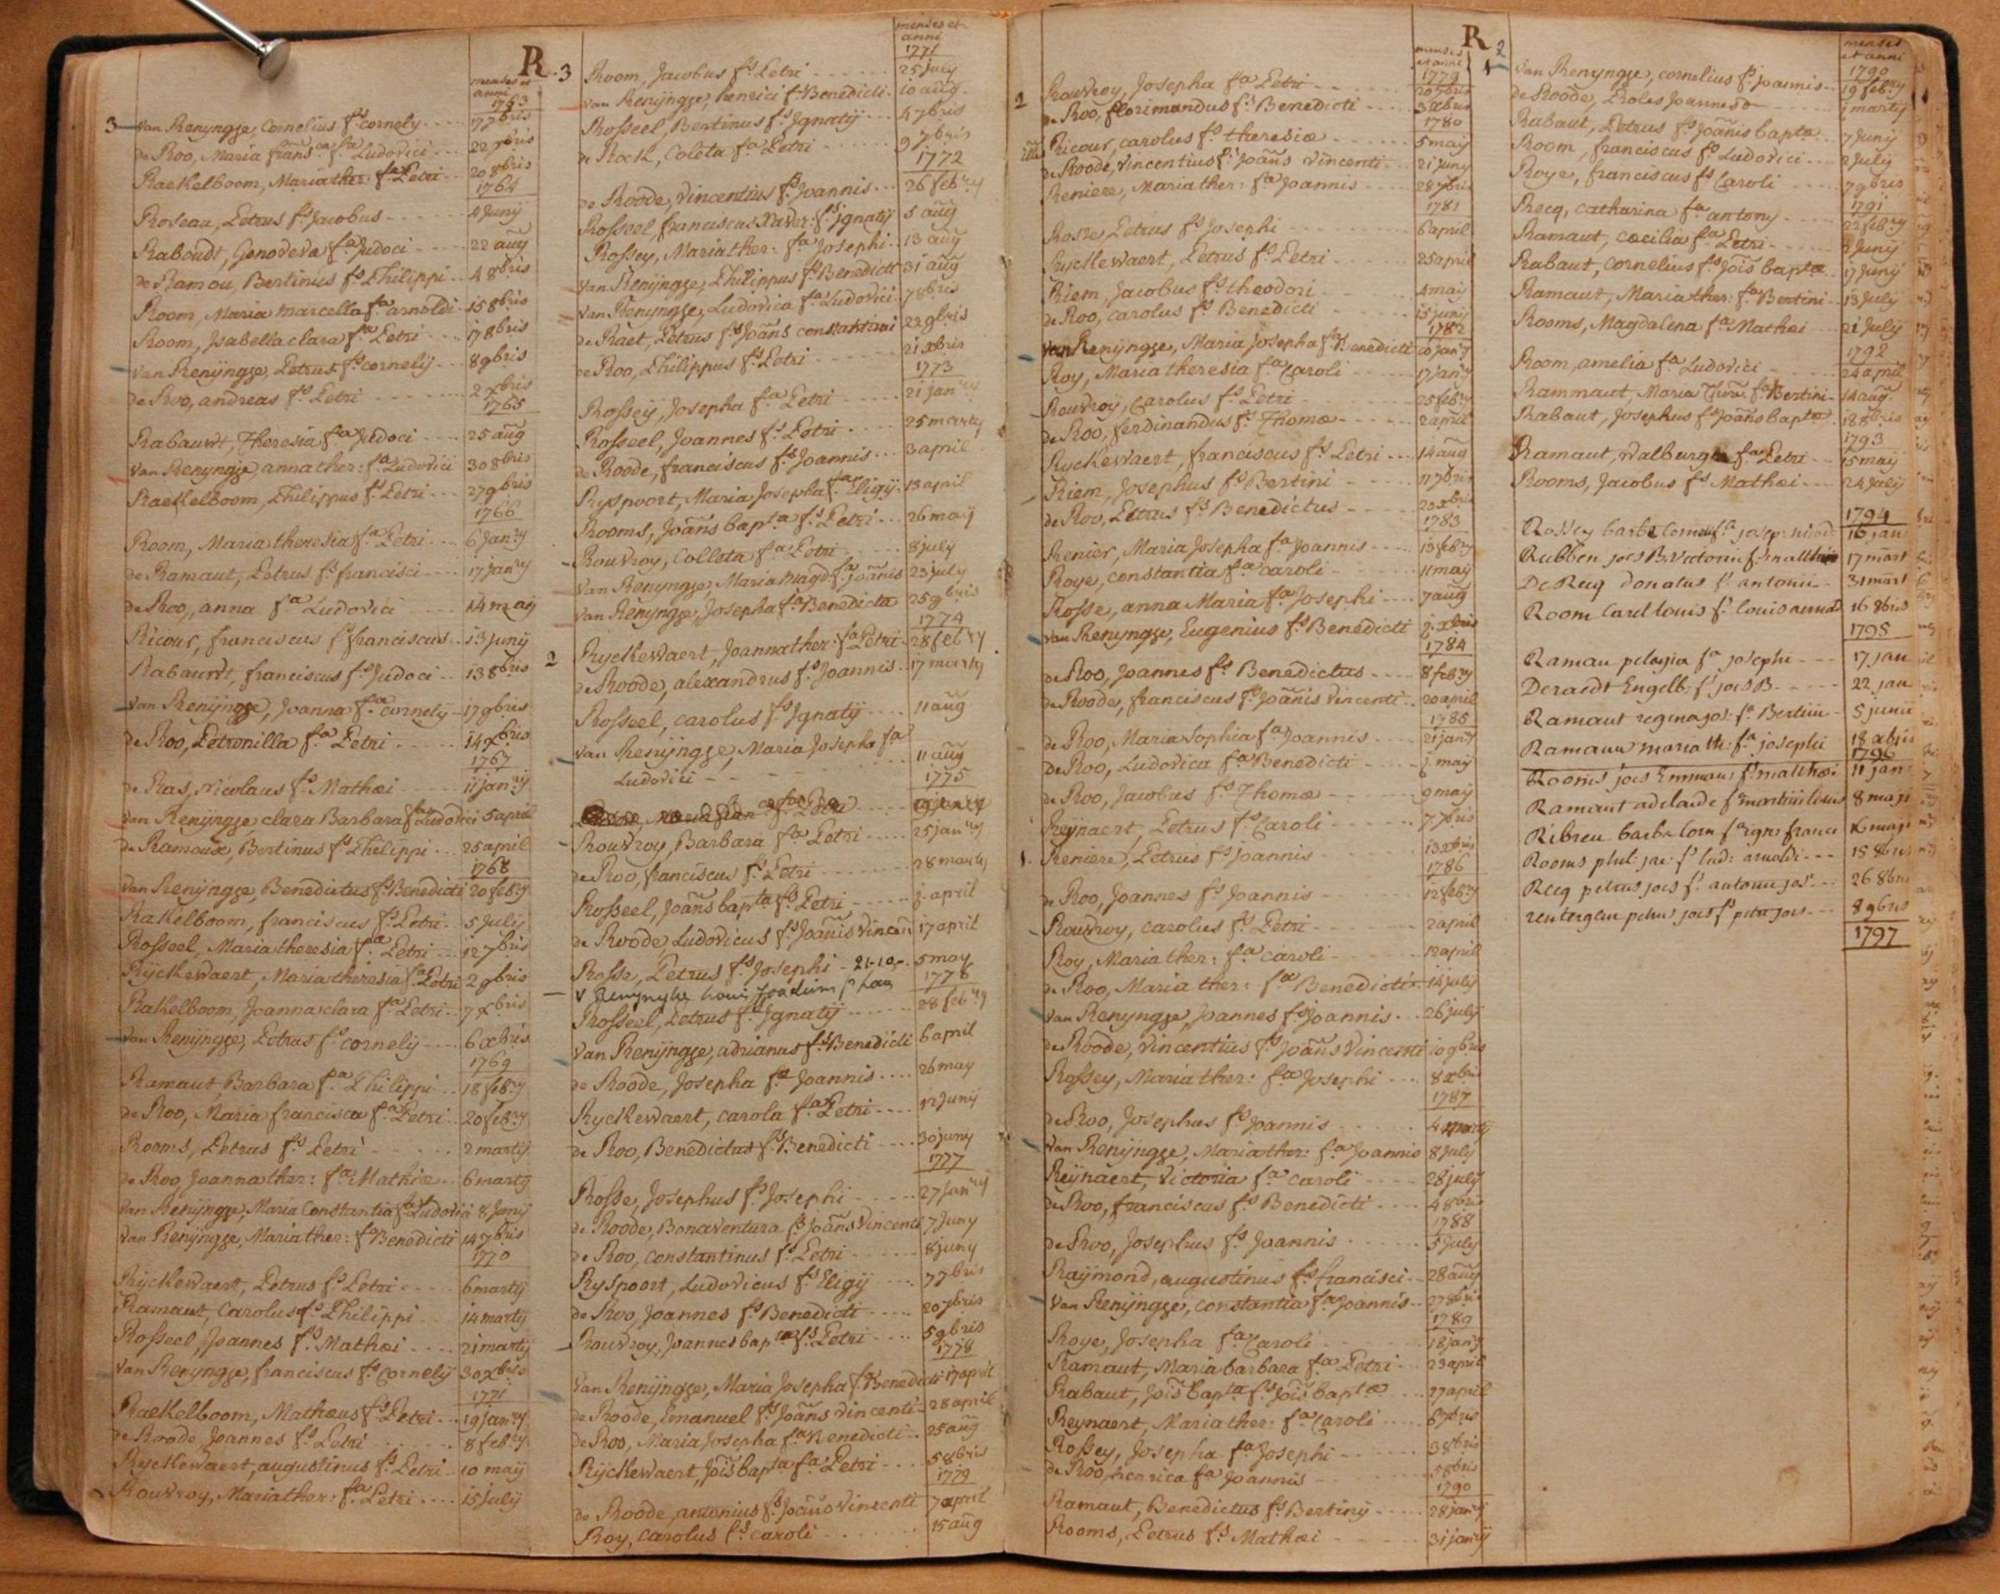 R
menses et
anni
1763
3 van Renyngje, Cornelius fs cornely 17 7bris
de Roo, Maria franca fa Ludovici 22 7bris
Raekelboom, Maria ther: fa Petri 20 8bris
1764
Roseau, Petrus fs Jacobus 4 Junij
Raboudt, Genoveva fa Judoci 22 aug
de Ramou, Bertinus fs Philippi 4 8bris
Room, Maria marcella fa arnoldi 15 8bris
Room, Isabella clara fa Petri 17 8bris
van Renyngje, Petrus fs cornelij 8 9bris
de Roo, andreas fs Petri 2 xbris
1765
Rabauwt, Theresia fa Judoci 25 aug
van Renyngje, anna ther: fa Ludovici 30 8bris
Raekelboom, Philippus fs Petri 27 9bris
1766
Room, Maria theresia fa Petri 6 Janry
de Ramaut, Petrus fs francisci 17 janry
de Roo, anna fa Ludovici 14 may
Ricour, franciscus fs franciscus 13 junij
Rabauwt, franciscus fs Judoci 13 8bris
van Renyngje, Joanna fa cornely 17 9bris
de Roo, Petronilla fa Petri 14 xbris
1767
de Ras, Nicolaus fs Mathæi 11 janry
van Renyngje, clara Barbara fa Ludovici 5 april
de Ramoux, Bertinus fs Philippi 25 april
1768
van Renyngje, Benedictus fs Benedicti 20 febry
Rakelboom, franciscus fs Petri 5 Julij
Rosseel, Maria theresia fa Petri 12 7bris
Ryckewaert, Maria theresia fa Petri 2 9bris
Rakelboom, Joanna clara fa Petri 7 xbris
van Renyngje, Petrus fs cornely 6 xbris
1769
Ramaut, Barbara fa Philippi 18 febry
de Roo, Maria francisca fa Petri 20 febry
Rooms, Petrus fs Petri 2 martij
de Roo, Joanna ther: fa Mathiæ 6 martij
van Renyngje, Maria Constantia fa Ludovici 8 Junij
van Renyngje, Maria ther: fa Benedicti 14 7bris
1770
Ryckewaert, Petrus fs Petri 6 martij
Ramaut, Carolus fs Philippi 14 martij
Rosseel, Joannes fs Mathæi 21 martij
van Renyngje, franciscus fs Cornelij 30 xbris
1771
Raekelboom, Mathæus fs Petri 19 janry
de Roode, Joannes fs Petri 8 febry
Ryckewaert, augustinus fs Petri 10 maij
Rouvroy, Maria ther: fa Petri 15 julij
menses et
anni
1771
3 Room, Jacobus fs Petri 25 july
van Renyngje, henrici fs Benedicti 10 aug
Rosseel, Bertinus fs Ignatij 4 7bris
de Rock, Coleta fa Petri 9 7bris
1772
de Roode, Vincentius fs Joannis 26 febry
Rosseel, franciscus Xaver: fs Ignatij 5 aug
Rossey, Maria ther: fa Josephi 13 aug
van Renyngje, Philippus fs Benedicti 31 aug
van Renyngje, Ludovica fa Ludovici 7 8bris
de Raet, Petrus fs Joans constantini 22 9bris
de Roo, Philippus fs Petri 21 xbris
1773
Rossey, Josepha fa Petri 21 janry
Rosseel, Joannes fs Petri 25 marty
de Roode, franciscus fs Joannis 3 april
Ryspoort, Maria Josepha fa Eligij 13 april
Rooms, Joans bapta fs Petri 26 maij
Rouvroy, Colleta fa Petri 8 july
van Renyngje, Maria magd: fa joannis 23 july
van Renyngje, Josepha fa Benedicta 25 9bris
1774
2 Ryckewaert, Joanna ther: fa Petri 28 febry
de Roode, alexandrus fs Joannis 17 marty
Rosseel, carolus fs Ignatij 11 aug
van Renyngje, Maria Josepha fa
Ludovici 11 aug
1775
Rouvroy, Barbara fa Petri 25 janry
de Roo, franciscus fs Petri 28 marty
Rosseel, Joans bapta fs Petri j. april
de Roode, Ludovicus fs Joans vincen 17 april
Rosse, Petrus fs Josephi 21-10 5 may
1776
Rosseel, Petrus fs Ignatij 28 febry
van Renyngje, adrianus fs Benedicti 6 april
de Roode, Josepha fa Joannis 26 may
Ryckewaert, carola fa Petri 12 junij
de Roo, Benedictus fs Benedicti 30 juny
1777
Rosse, Josephus fs Josephi 27 janry
de Roode, Bonaventura fs joans Vincenti 7 Juny
de Roo, constantinus fs Petri 8 juny
Ryspoort, Ludovicus fs Eligij 7 7bris
de Roo, Joannes fs Benedicti 20 7bris
Rouvroy, Joannes bapta fs Petri 5 9bris
1778
van Renyngje, Maria Josepha fa Benedicti 17 april
de Roode, Emanuel fs Joans Vincenti 28 april
de Roo, Maria Josepha fa Benedicti 25 aug
Ryckewaert, Jois bapta fs Petri 5 8bris
1779
de Roode, antonius fs Joans Vincenti 7 april
Roy, carolus fs caroli 15 aug
R
menses
et anni
1779
2 Rouvroy, Josepha fa Petri 20 7bris
de Roo, florimondus fs Benedicti 3 xbris
1780
Ricour, carolus fs theresiæ 5 may
de Roode, Vincentius fs Joans Vincenti 21 juny
Reniere, Maria ther: fa Joannis 28 7bris
1781
Rosse, Petrus fs Josephi 6 april
Ryckewaert, Petrus fs Petri 25 april
Riem, Jacobus fs theodori 4 maij
de Roo, carolus fs Benedicti 15 junij
1782
van Renyngje, Maria Josepha fa Benedicti 10 janry
Roy, Maria theresia fa Caroli 17 janry
Rouvroy, Carolus fs Petri 25 febry
de Roo, ferdinandus fs Thomæ 2 april
Ryckewaert, franciscus fs Petri 14 aug
Riem, Josephus fs Bertini 11 7bris
de Roo, Petrus fs Benedictus 20 xbris
1783
Renier, Maria Josepha fa Joannis 13 febry
Roye, constantia fa caroli 11 may
Rosse, anna Maria fa Josephi 7 aug
van Renyngje, Eugenius fs Benedicti j. xbris
1784
de Roo, Joannes fs Benedictus 8 febry
de Roode, franciscus fs Joanis Vincenti 20 april
1785
de Roo, Maria Sophia fa Joannis 21 janry
de Roo, Ludovica fa Benedicti j. may
de Roo, Jacobus fs Thomæ 9 may
Reynaert, Petrus fs Caroli 7 7bris
1. Reniere, Petrus fs joannis 13 xbris
1786
de Roo, Joannes fs Joannis 12 febry
Rouvroy, carolus fs Petri 2 april
Roy, Maria ther: fa caroli 12 april
de Roo, Maria ther: fa Benedicti 14 julij
van Renyngje, Joannes fs joannis 26 julij
de Roode, Vincentius fs Joans Vincenti 10 9bris
Rossey, Maria ther: fa Josephi 8 xbris
1787
de Roo, Josephus fs Joannis 4 marty
van Renyngje, Maria ther: fa Joannis 8 july
Reynaert, Victoria fa caroli 28 july
de Roo, franciscus fs Benedicti 4 8bris
1788
de Roo, Josephus fs Joannis 5 july
Raymond, augustinus fs francisci 28 aug
van Renyngje, constantia fa Joannis 27 8bris
1789
Roye, Josepha fa Caroli 18 janry
Ramaut, Maria barbara fa Petri 23 april
Rabaut, Jois bapta fs Jois baptæ 27 april
Reynaert, Maria ther: fa Caroli 6 7bris
Rossey, Josepha fa Josephi 3 8bris
de Roo, henrica fa Joannis 5 8bris
1790
Ramaut, Benedictus fs Bertiny 28 janry
Rooms, Petrus fs Mathæi 31 janry
2
menses
et anni
1790
1 van Renyngje, cornelius fs joannis 19 febry
de Roode, 1 marty
Rabaut, Petrus fs Joanis baptæ 7 Junij
Room, franciscus fs Ludovici 2 July
Roye, franciscus fs Caroli 7 9bris
1791
Recq, catharina fa antony 22 febry
Ramaut, cæcilia fa Petri 8 Junij
Rabaut, cornelius fs Jois baptæ 17 Junij
Ramaut, Maria ther: fa Bertini 13 July
Rooms, Magdalena fa Mathæi 21 July
1792
Room, amelia fa Ludovici 24 april
Rammaut, Maria fa Bertini 14 aug
Rabaut, Josephus fs Joans baptæ 18 8bris
1793
Ramaut, Walburga fa Petri 15 maij
Rooms, Jacobus fs Mathæi 24 July
1794
Rossey barbe fa joseph 16 jan
Rubben joes B. Victorin fs 17 mart
De Reuq donatus fs antonii 31 mart
Room Carel louis fs louis 16 8bris
1795
Ramau pelagia fa josephi 17 jan
Deraedt Engelb: fs joes B. 22 jan
Ramaut regina jos: fa Bertini 5 junii
Ramaut maria th: fa josephi 18 xbris
1796
Rooms joes Emman: fs matthæi 11 jan
Ramaut adelaide 8 maji
Ribreu barbe 16 maji
Rooms phil. jac: fs lud: arnoldi 15 8bris
Recq petrus joes fs antonii jos: 26 8bris
petrus joes fs petri jois 8 9bris
1797